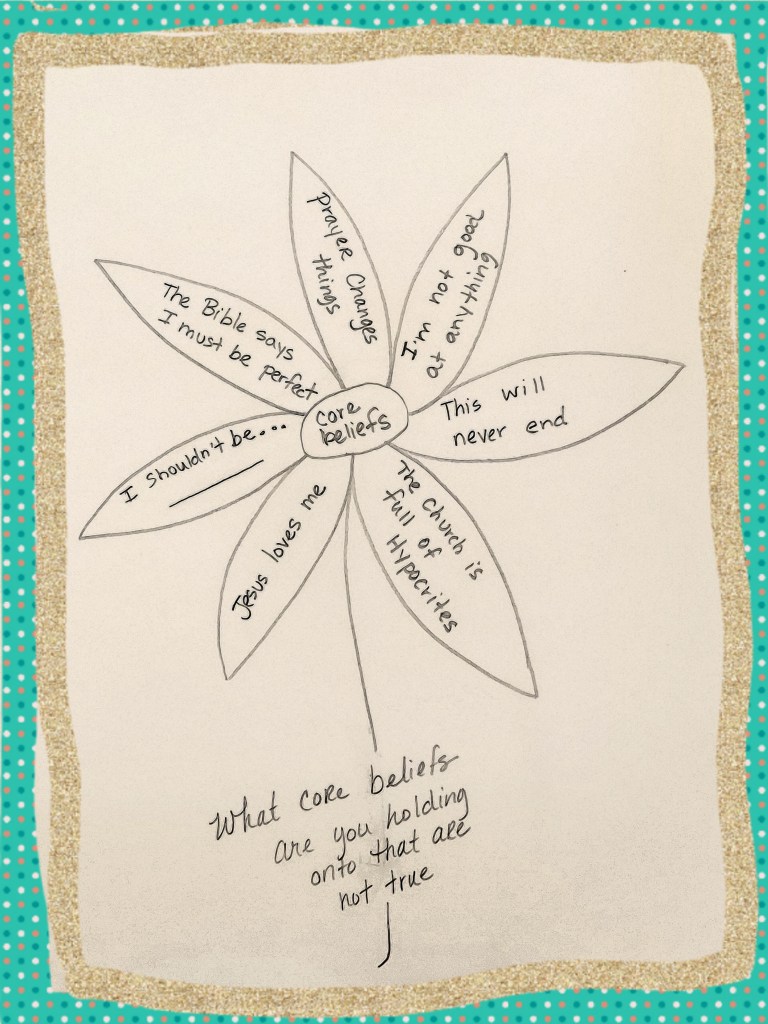 Prayer Changes
things
I'm not good
at anything
The Bible says
I must be perfect
This will
never end
core
beliefs
I shouldn't be...
The Church is
full of
Hypocrites
Jesus loves me
What core beliefs
are you holding
onto that are
not true